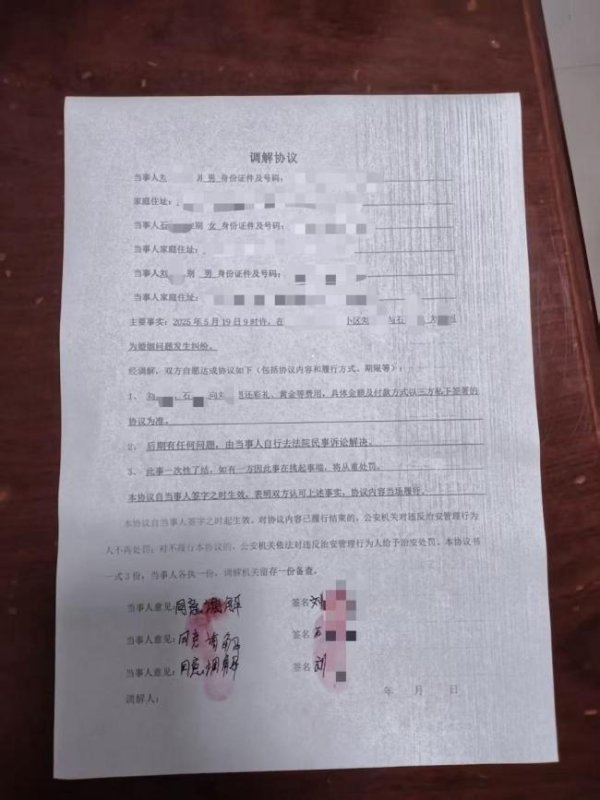 调解协议
当事人 男 身份证件及号码：
家庭住址：
当事人石 别 女 身份证件及号码：
当事人家庭住址：
当事人刘 别 男 身份证件及号码：
当事人家庭住址：
主要事实：2025年5月19日9时许，在 与石
为婚姻问题发生纠纷。
经调解，双方自愿达成协议如下（包括协议内容和履行方式、期限等）：
1、 、石 向 还彩礼、黄金等费用，具体金额及付款方式以三方私下签署的
协议为准。
2、后期有任何问题，由当事人自行去法院民事诉讼解决。
3、此事一次性了结，如有一方因此事在挑起事端，将从重处罚。
本协议自当事人签字之时生效，表照双方认可上述事实，协议内容当场履行。
本协议自当事人签字之时起生效。对协议内容已履行结束的，公安机关对违反治安管理行为
人不再处罚；对不履行本协议的，公安机关依法对违反治安管理行为人给予治安处罚。本协议书
一式3份，当事人各执一份，调解机关留存一份备查。
当事人意见：同意调解 签名 刘
当事人意见：同意调解 签名 石
当事人意见：同意调解 签名 刘
调解人： 年 月 日